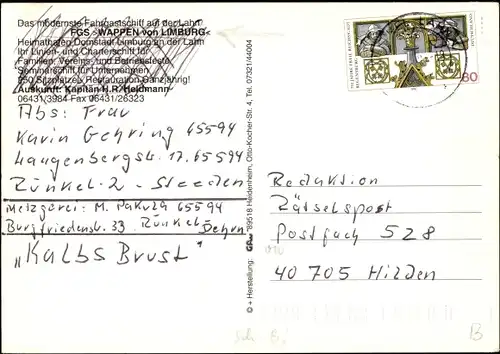 Das modernste Fahrgastschiff auf der Lahn
FGS »WAPPEN von LIMBURG«
Heimathafen Domstadt Limburg an der Lahn
Ihr Linien- und Charterschiff für
Familien, Vereins- und Betriebsfeste
Sommerschiff für Unternehmen
250 Sitzplätze, Restauration Ganzjährig!
Auskunft: Kapitän H.R. Heidmann
06431/3984 Fax 06431/26323
Abs: Frau
Karin Gehring 65594
Laugenbergstr. 17. 65594
Runkel-2- Steeden
Metzgerei: M. Pakula 65594
Burgfriedenstr. 33 Runkel Dehrn
"Kalbs Brust"
© + Herstellung: 89518 Heidenheim, Otto-Kocher-Str. 4, Tel. 07321/44004
80
Redaktion
Rätselspost
Postfach 528
40705 Hilden
B